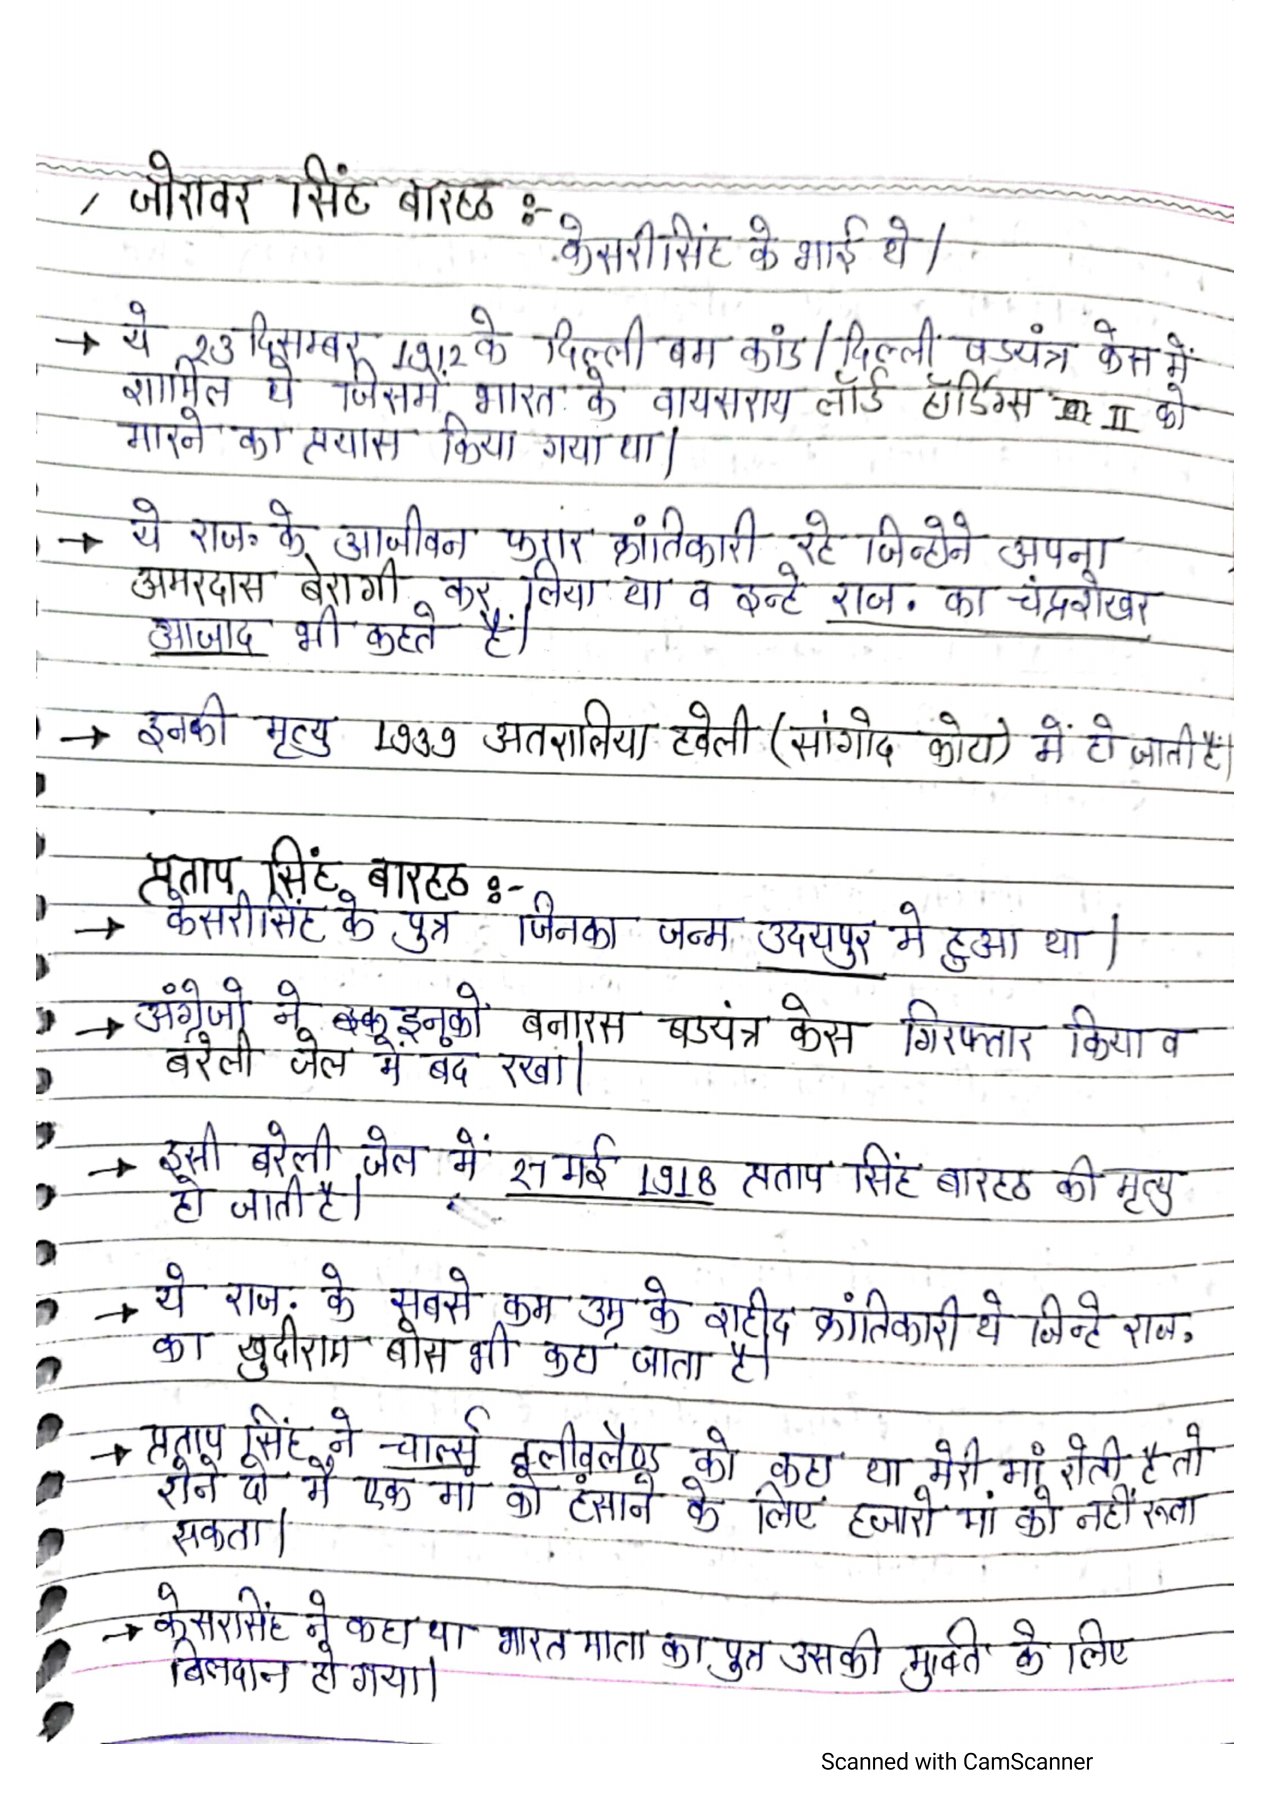 जोरावर सिंह बारहठ :-
केसरीसिंह के भाई थे।
→ ये 23 दिसम्बर 1912 के दिल्ली बम कांड / दिल्ली षडयंत्र केस में
शामिल थे जिसमें भारत के वायसराय लॉर्ड हॉर्डिंग्स II को
मारने का प्रयास किया गया था।
→ ये राज. के आजीवन फरार क्रांतिकारी रहे जिन्होने अपना
अमरदास बेरागी कर लिया था व इन्हे राज. का चंद्रशेखर
आजाद भी कहते हैं।
→ इनकी मृत्यु 1939 अतरालिया हवेली (सांगोद कोटा) में हो जाती हैं।
प्रताप सिंह बारहठ :-
→ केसरीसिंह के पुत्र जिनका जन्म उदयपुर मे हुआ था।
→ अंग्रेजो ने इनको बनारस षडयंत्र केस गिरफ्तार किया व
बरेली जेल में बंद रखा।
→ इसी बरेली जेल में 27 मई 1918 प्रताप सिंह बारहठ की मृत्यु
हो जाती है।
→ ये राज. के सबसे कम उम्र के शहीद क्रांतिकारी थे जिन्हे राज.
का खुदीराम बोस भी कहा जाता है।
→ प्रताप सिंह ने चार्ल्स क्लीवलैण्ड को कहा था मेरी मां रोती है तो
रोने दो मैं एक मां को हंसाने के लिए हजारो मां को नहीं रूला
सकता।
→ केसरसिंह ने कहा था भारत माता का पुत्र उसकी मुक्ति के लिए
बिलदान हो गया।
Scanned with CamScanner